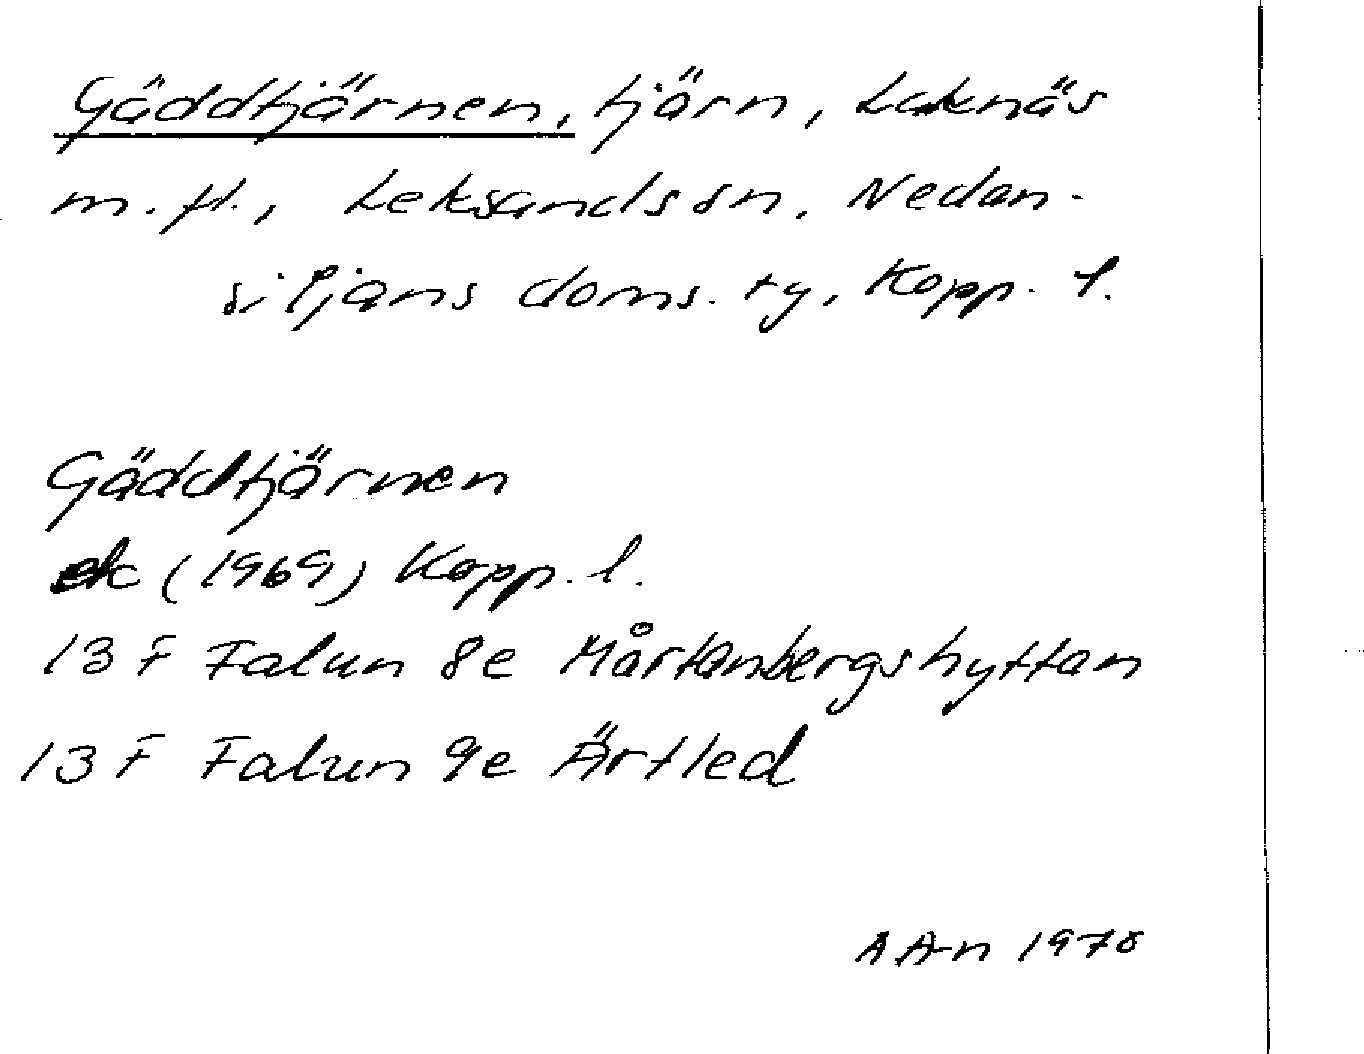 Gäddtjärnen, tjärn, Laknäs
m. fl., Leksands sn, Nedan-
siljans doms. ty, Kopp. l.
Gäddtjärnen
ek (1969) Kopp. l.
13 F Falun 8e Mårtanbergshyttan
13 F Falun 9e Ärtled
A A-n 1978